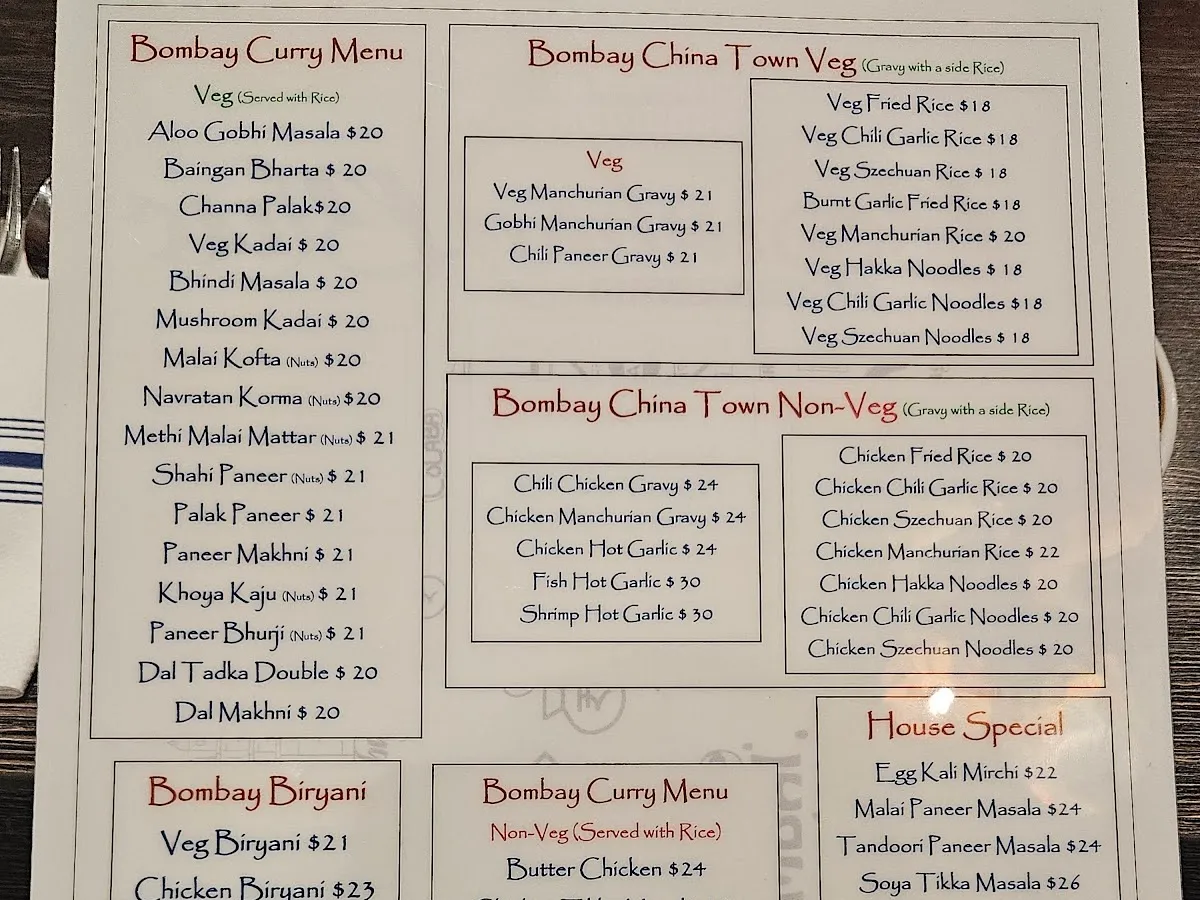 Bombay Curry Menu
Veg (Served with Rice)
Aloo Gobhi Masala $20
Baingan Bharta $ 20
Channa Palak$20
Veg Kadai $ 20
Bhindi Masala $ 20
Mushroom Kadai $ 20
Malai Kofta (Nuts) $20
Navratan Korma (Nuts) $20
Methi Malai Mattar (Nuts) $ 21
Shahi Paneer (Nuts) $ 21
Palak Paneer $ 21
Paneer Makhni $ 21
Khoya Kaju (Nuts) $ 21
Paneer Bhurji (Nuts) $ 21
Dal Tadka Double $ 20
Dal Makhni $ 20
Bombay China Town Veg (Gravy with a side Rice)
Veg
Veg Manchurian Gravy $ 21
Gobhi Manchurian Gravy $ 21
Chili Paneer Gravy $ 21
Veg Fried Rice $18
Veg Chili Garlic Rice $18
Veg Szechuan Rice $ 18
Burnt Garlic Fried Rice $18
Veg Manchurian Rice $ 20
Veg Hakka Noodles $ 18
Veg Chili Garlic Noodles $18
Veg Szechuan Noodles $ 18
Bombay China Town Non-Veg (Gravy with a side Rice)
Chili Chicken Gravy $ 24
Chicken Manchurian Gravy $ 24
Chicken Hot Garlic $ 24
Fish Hot Garlic $ 30
Shrimp Hot Garlic $ 30
Chicken Fried Rice $ 20
Chicken Chili Garlic Rice $ 20
Chicken Szechuan Rice $ 20
Chicken Manchurian Rice $ 22
Chicken Hakka Noodles $ 20
Chicken Chili Garlic Noodles $ 20
Chicken Szechuan Noodles $ 20
COLABA
Bombay Biryani
Veg Biryani $21
Chicken Biryani $23
Bombay Curry Menu
Non-Veg (Served with Rice)
Butter Chicken $24
House Special
Egg Kali Mirchi $22
Malai Paneer Masala $24
Tandoori Paneer Masala $24
Soya Tikka Masala $26